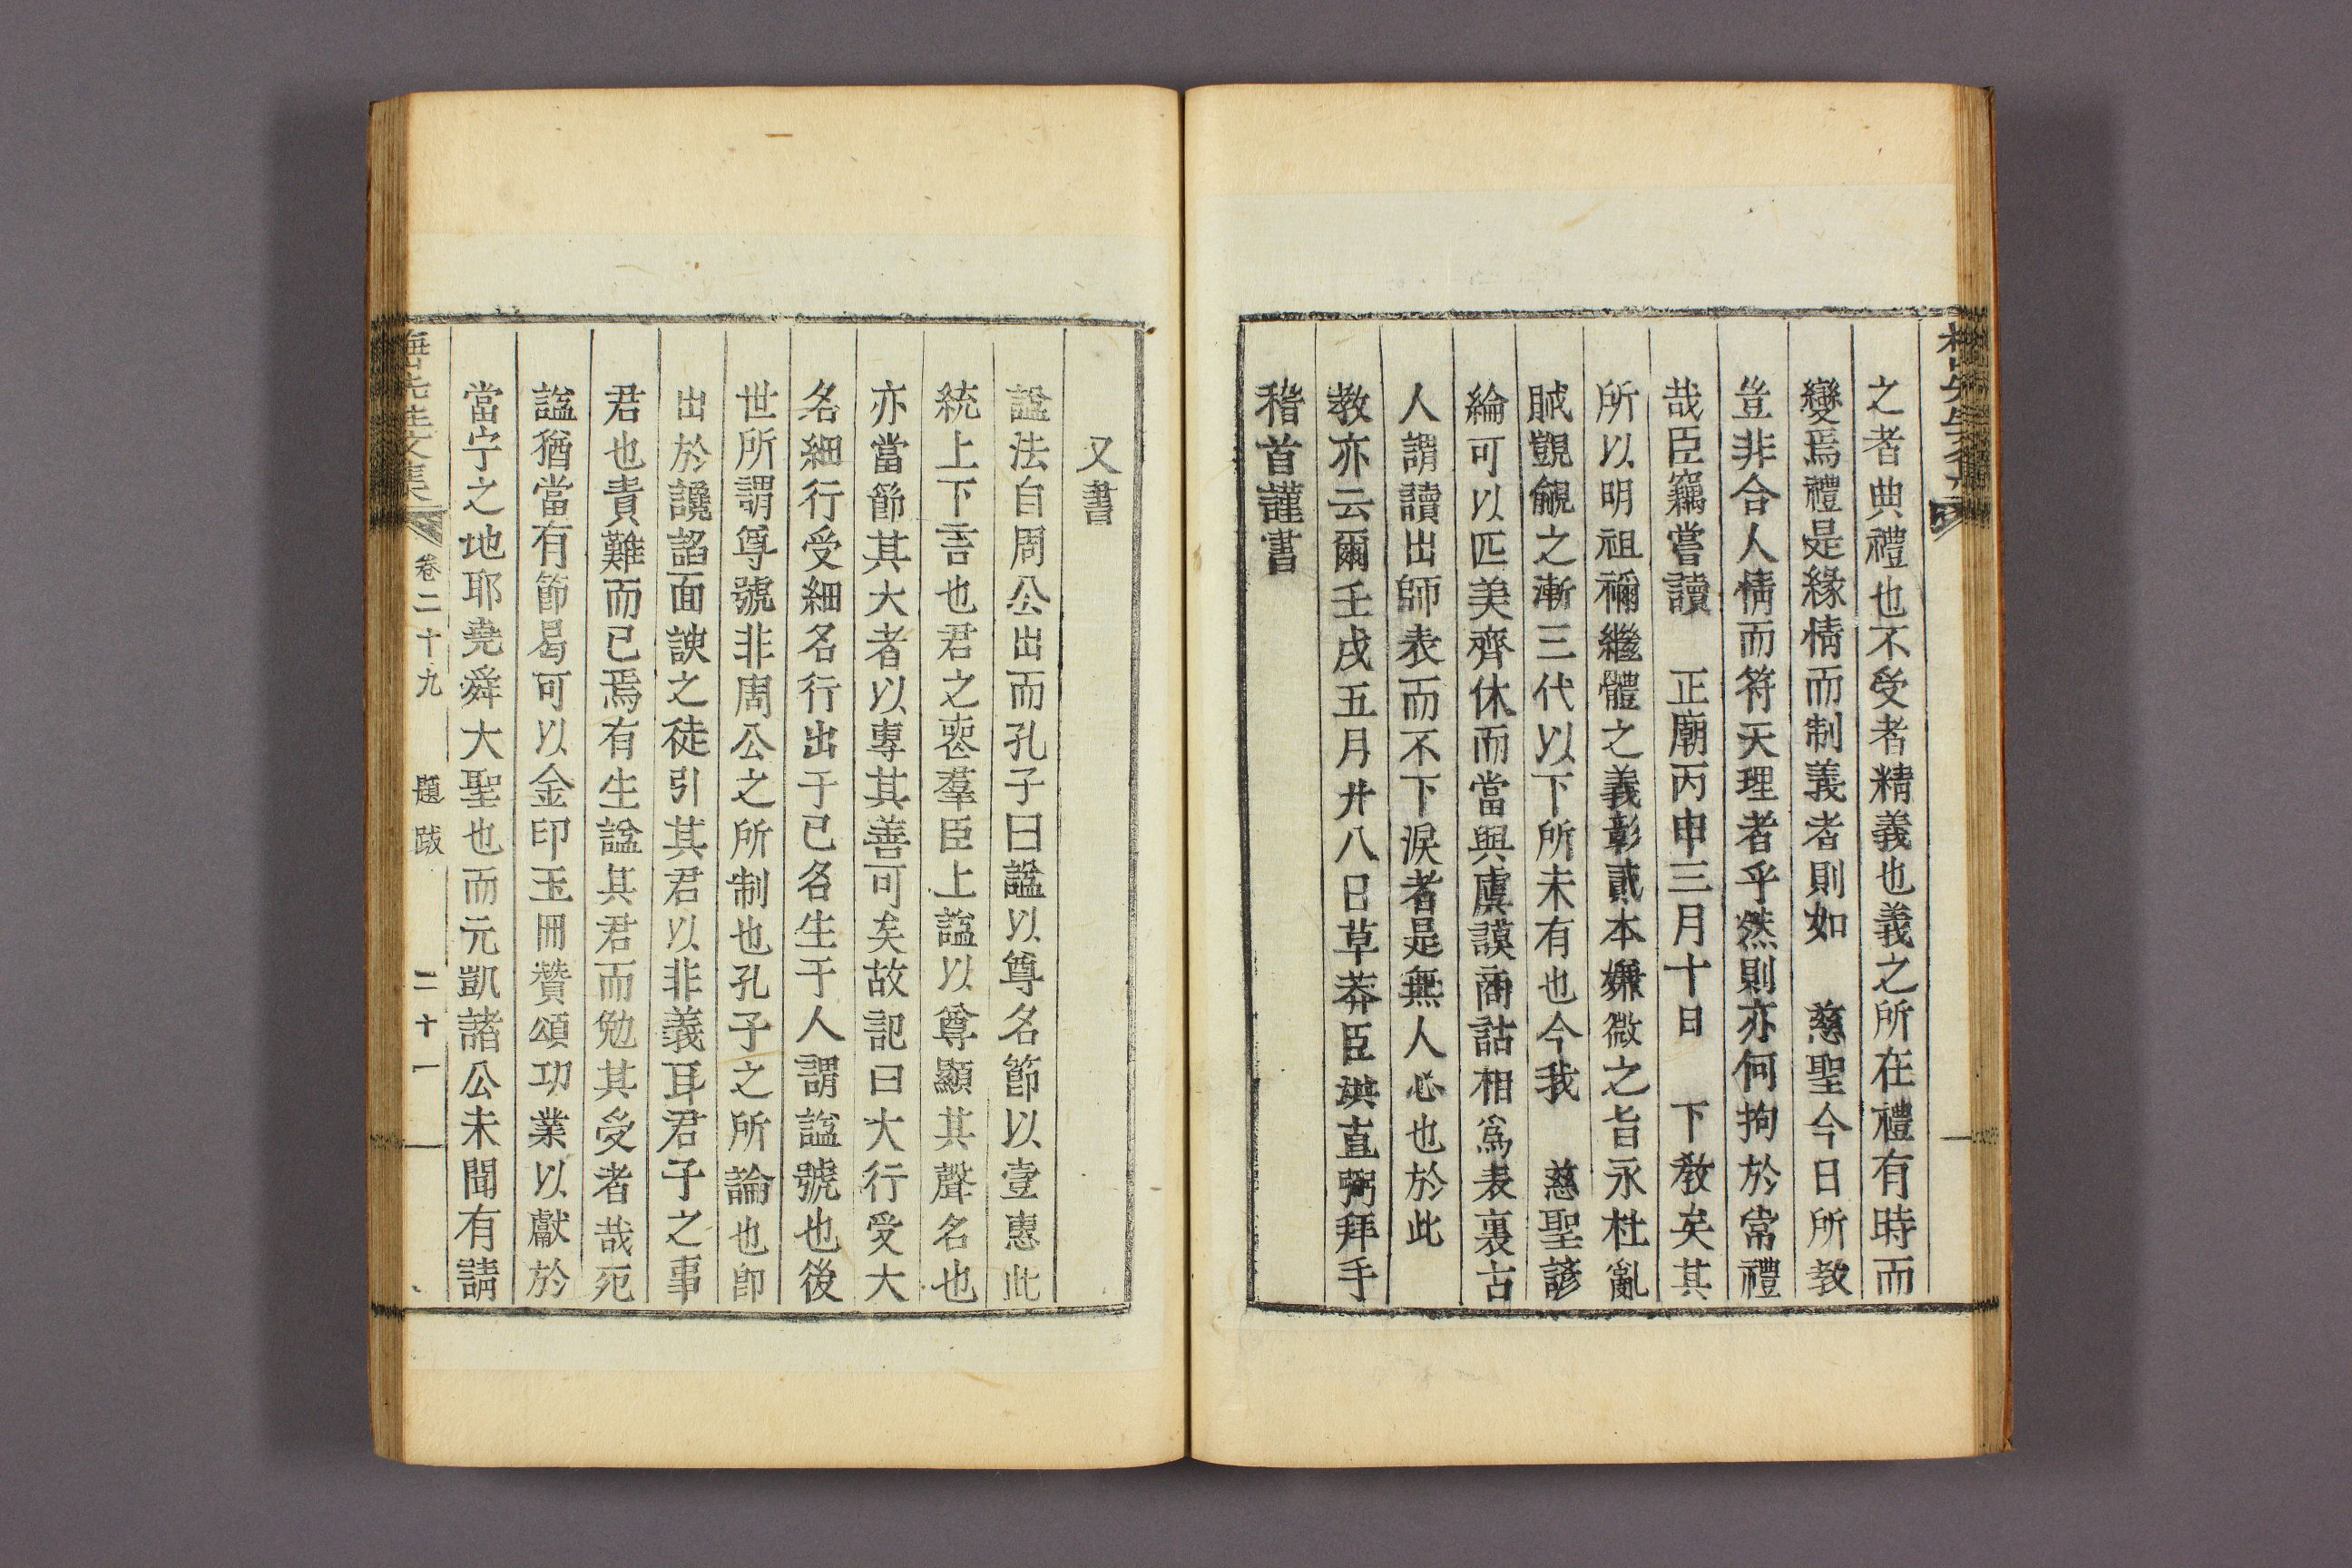 之者典禮也不受者精義也義之所在禮有時而
變焉禮是緣情而制義者則如 慈聖今日所教
豈非合人情而符天理者乎然則亦何拘於常禮
哉臣竊嘗讀 正廟丙申三月十日 下教矣其
所以明祖禰繼體之義彰貳本嫌微之旨永杜亂
賊覬覦之漸三代以下所未有也今我 慈聖諺
綸可以匹美齊休而當與虞謨商誥相爲表裏古
人謂讀出師表而不下淚者是無人心也於此
教亦云爾壬戌五月廾八日草莽臣洪直弼拜手
稽首謹書
又書
諡法自周公出而孔子曰諡以尊名節以壹惠此
統上下言也君之喪羣臣上諡以尊顯其聲名也
亦當節其大者以專其善可矣故記曰大行受大
名細行受細名行出于己名生于人謂諡號也後
世所謂尊號非周公之所制也孔子之所論也卽
出於讒謟面諛之徒引其君以非義耳君子之事
君也責難而已焉有生諡其君而勉其受者哉死
諡猶當有節曷可以金印玉冊贊頌功業以獻於
當宁之地耶堯舜大聖也而元凱諸公未聞有請
梅山先生文集 卷二十九 題跋 二十一